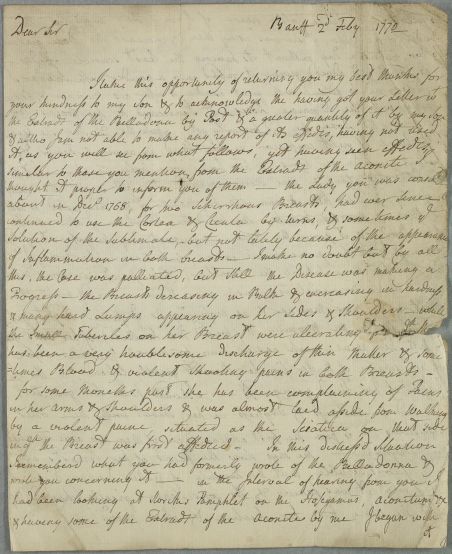 Dear Sir
Banff 2d Feby 1770
I take this opportunity of returning you my best thanks for
your kindness to my son & to acknowledge the having got your Letter &
the Extract of the Belladona by Post & a smaler quantity of it by my son
& altho I am not able to make any report of its effects, having not used
it, as you will see from what follows, yet having seen effects
similar to those you mention, from the Extract of the aconite I
thought it proper to inform you of them — the Lady you was
about in Decr 1768, for two Schirrhous Breasts, had ever since
continued to use the Cortex & Cicuta by turns, & sometimes ye
Solution of the Sublimate, but not lately because of the appearance
of Inflammation in both breasts — I make no doubt but by all
this, the Case was palliated, but still the Disease was making a
Progress — the Breasts decreasing in Bulk & increasing in hardness
& many hard Lumps appearing on her sides & Shoulders — while
the Small Tubercles on her Breast were ulcerating
has been a very troublesome discharge of thin Matter & some
=times Blood & violent Shooting pains in both Breasts —
for some Months past she has been complaining of Pains
in her arms & Shoulders & was almost laid asside from Walking
by a violent paine, situated as the Sciatica on that side
the Breast was first affected. In this distress'd Situation
I remembered what you had formerly wrote of the Belladonna &
wrote you concerning it — in the Interval of hearing from you I
had been looking at Storcks Pamphlet on the Hyosyamus aconitum &c
& having some of the Extract of the aconite by me I began with
it